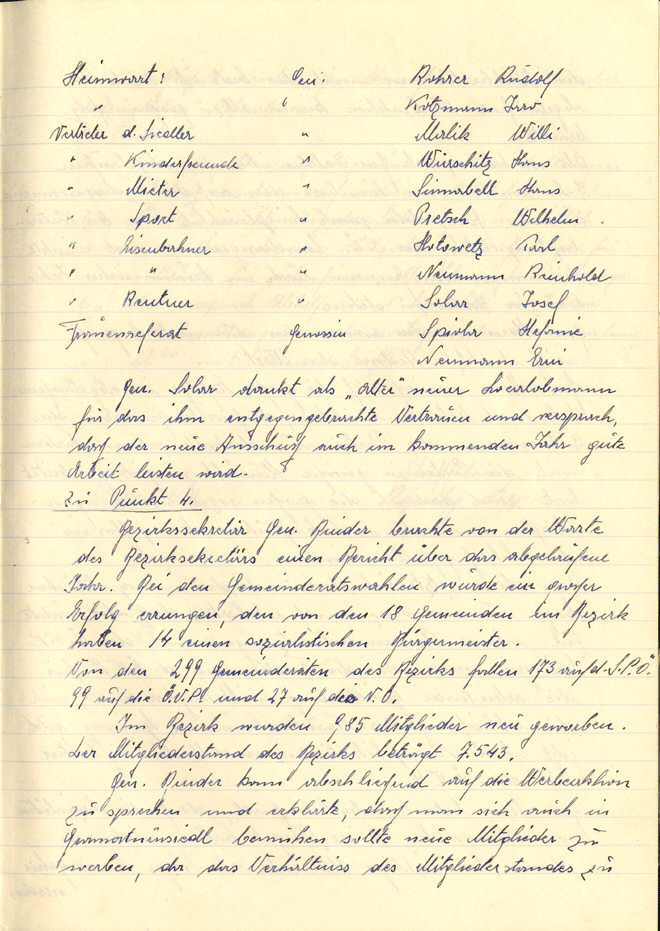 Heimwart: Gen: Rohrer Rudolf
" " Kotzmann Ivo
Vertreter d. Siedler " Malik Willi
" Kinderfreunde " Würschitz Hans
" Mieter " Sinnabell Hans
" Sport " Pretsch Wilhelm.
" Eisenbahner " Hotowetz Karl
" " " Neumann Reinhold
" Rentner " Solar Josef
Frauenreferat Genossin Spiola Stefanie
Neumann Erni
Gen. Solar dankt als „alter" neuer Lokalobmann
für das ihm entgegengebrachte Vertrauen und versprach,
daß der neue Ausschuß auch im kommenden Jahr gute
Arbeit leisten wird.
zu Punkt 4.
Bezirkssekretär Gen. Binder brachte von der Warte
des Bezirksekretärs einen Bericht über das abgelaufene
Jahr. Bei den Gemeinderatswahlen wurde ein großer
Erfolg errungen, den von den 18 Gemeinden im Bezirk
haben 14 einen sozialistischen Bürgermeister.
Von den 299 Gemeinderäten des Bezirks fallen 173 auf d. S.P.Ö.
99 auf die Ö.V.P. und 27 auf die V.O.
Im Bezirk wurden 985 Mitglieder neu geworben.
Der Mitgliederstand des Bezirks beträgt 7.543.
Gen. Binder kam abschließend auf die Werbeaktion
zu sprechen und erklärte, daß man sich auch in
Gramatneusiedl bemühen sollte neue Mitglieder zu
werben, da das Verhältniss des Mitgliederstandes zu